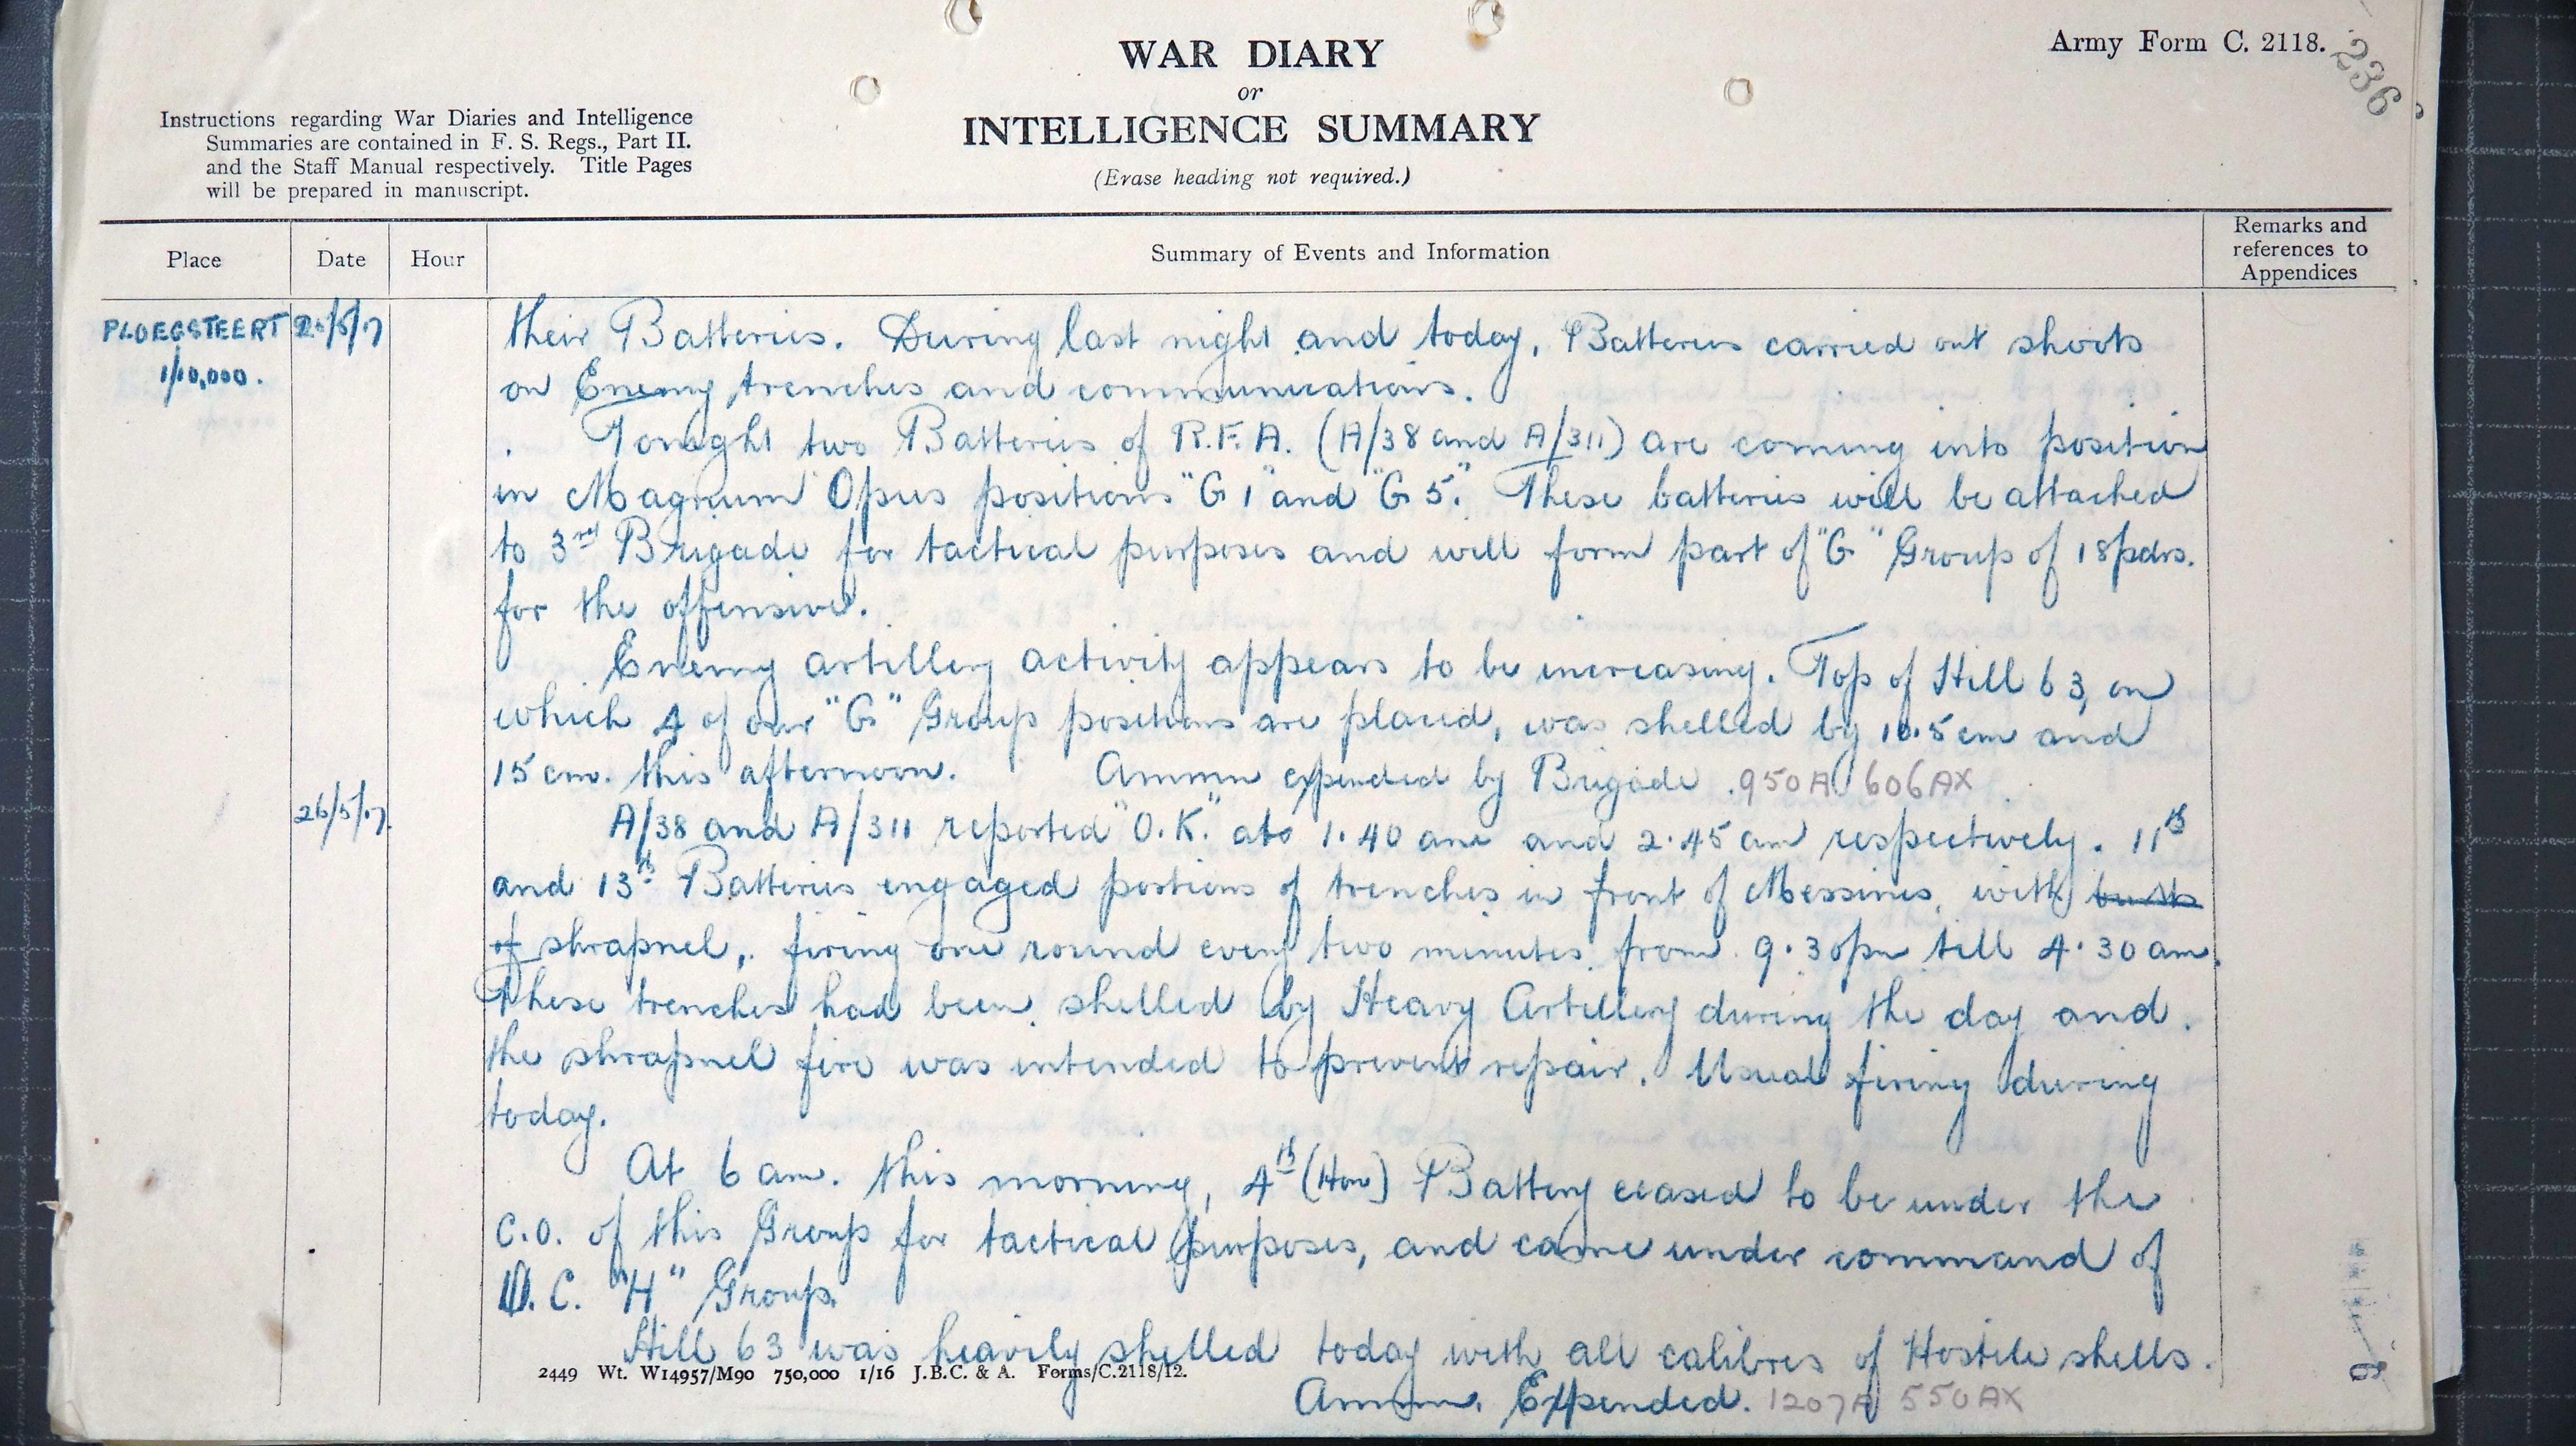 WAR DIARY
or
INTELLIGENCE SUMMARY
(Erase heading not required.)
Army Form C. 2118.
236
Instructions regarding War Diaries and Intelligence
Summaries are contained in F. S. Regs., Part II.
and the Staff Manual respectively. Title Pages
will be prepared in manuscript.
Place
Date
Hour
Summary of Events and Information
Remarks and
references to
Appendices
PLOEGSTEERT
1/10,000.
their Batteries. During last night and today, Batteries carried out shoots
on Enemy trenches and communications.
Tonight two Batteries of R.F.A. (A/38 and A/311) are coming into position
in Magnum Opus positions "G 1" and "G 5." These batteries will be attached
to 3rd Brigade for tactical purposes and will form part of "G" Group of 18pdrs.
for the offensive.
Enemy artillery activity appears to be increasing. Top of Hill 63, on
which 4 of our "G" Group positions are placed, was shelled by 10.5 cm and
15 cm. this afternoon. Ammn expended by Brigade 950A 606AX
26/5/17.
A/38 and A/311 reported "O.K." at 1.40 am and 2.45 am respectively. 11th
and 13th Batteries engaged portions of trenches in front of Messines, with bursts
of shrapnel, firing one round every two minutes from 9.30pm till 4.30 am.
These trenches had been shelled by Heavy Artillery during the day and
the shrapnel fire was intended to prevent repair. Usual firing during
today.
At 6 am. this morning, 4th (How) Battery ceased to be under the
C.O. of this Group for tactical purposes, and came under command of
O. C. "H" Group.
Hill 63 was heavily shelled today with all calibres of Hostile shells.
2449 Wt. W14957/M90 750,000 1/16 J.B.C. & A. Forms/C.2118/12.
Ammn. Expended. 1207A 550AX